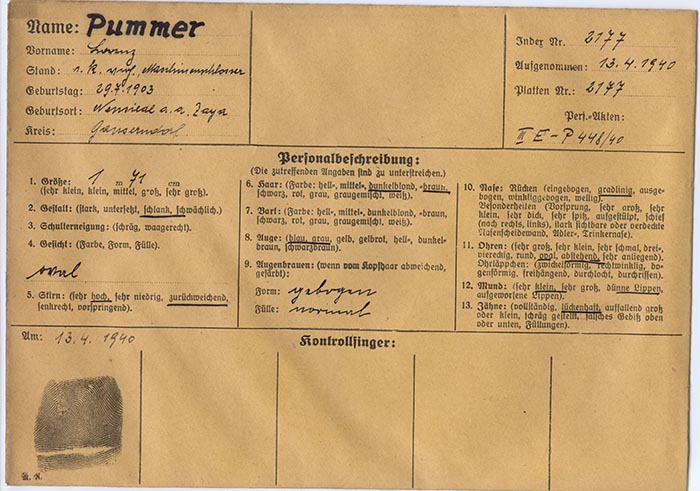 Name: Pummer
Vorname: Lorenz
Stand: r. k. verh. Maschinenschlosser
Geburtstag: 29.7.1903
Geburtsort: a. a. Zaya
Kreis: Gänserndorf
Index Nr. 2177
Aufgenommen: 13.4.1940
Platten Nr.: 2177
Pers.-Akten:
II E-P 448/40
Personalbeschreibung:
(Die zutreffenden Angaben sind zu unterstreichen.)
1. Größe: 1 m 71 cm
(sehr klein, klein, mittel, groß, sehr groß).
2. Gestalt: (stark, untersetzt, schlank, schwächlich).
3. Schulterneigung: (schräg, waagerecht).
4. Gesicht: (Farbe, Form, Fülle).
oval
5. Stirn: (sehr hoch, sehr niedrig, zurückweichend,
senkrecht, vorspringend).
6. Haar: (Farbe: hell-, mittel-, dunkelblond, -braun,
schwarz, rot, grau, graugemischt, weiß).
7. Bart: (Farbe: hell-, mittel-, dunkelblond, -braun,
schwarz, rot, grau, graugemischt, weiß).
8. Auge: (blau, grau, gelb, gelbrot, hell-, dunkel-
braun, schwarzbraun).
9. Augenbrauen: (wenn vom Kopfhaar abweichend,
gefärbt):
Form: gebogen
Fülle: normal
10. Nase: Rücken (eingebogen, gradlinig, ausge-
bogen, winkliggebogen, wellig).
Besonderheiten (Vorsprung, sehr groß, sehr
klein, sehr dick, sehr spitz, aufgestülpt, schief
(nach rechts, links), stark sichtbare oder verdeckte
Nasenscheidewand, Adler-, Trinkernase).
11. Ohren: (sehr groß, sehr klein, sehr schmal, drei-,
viereckig, rund, oval, abstehend, sehr anliegend).
Ohrläppchen: (zwickelförmig, rechtwinklig, bo-
genförmig, freihängend, durchlocht, durchrissen).
12. Mund: (sehr klein, sehr groß, dünne Lippen,
aufgeworfene Lippen).
13. Zähne: (vollständig, lückenhaft, auffallend groß
oder klein, schräg gestellt, falsches Gebiß oben
oder unten, Füllungen).
Am: 13.4.1940
Kontrollfinger: